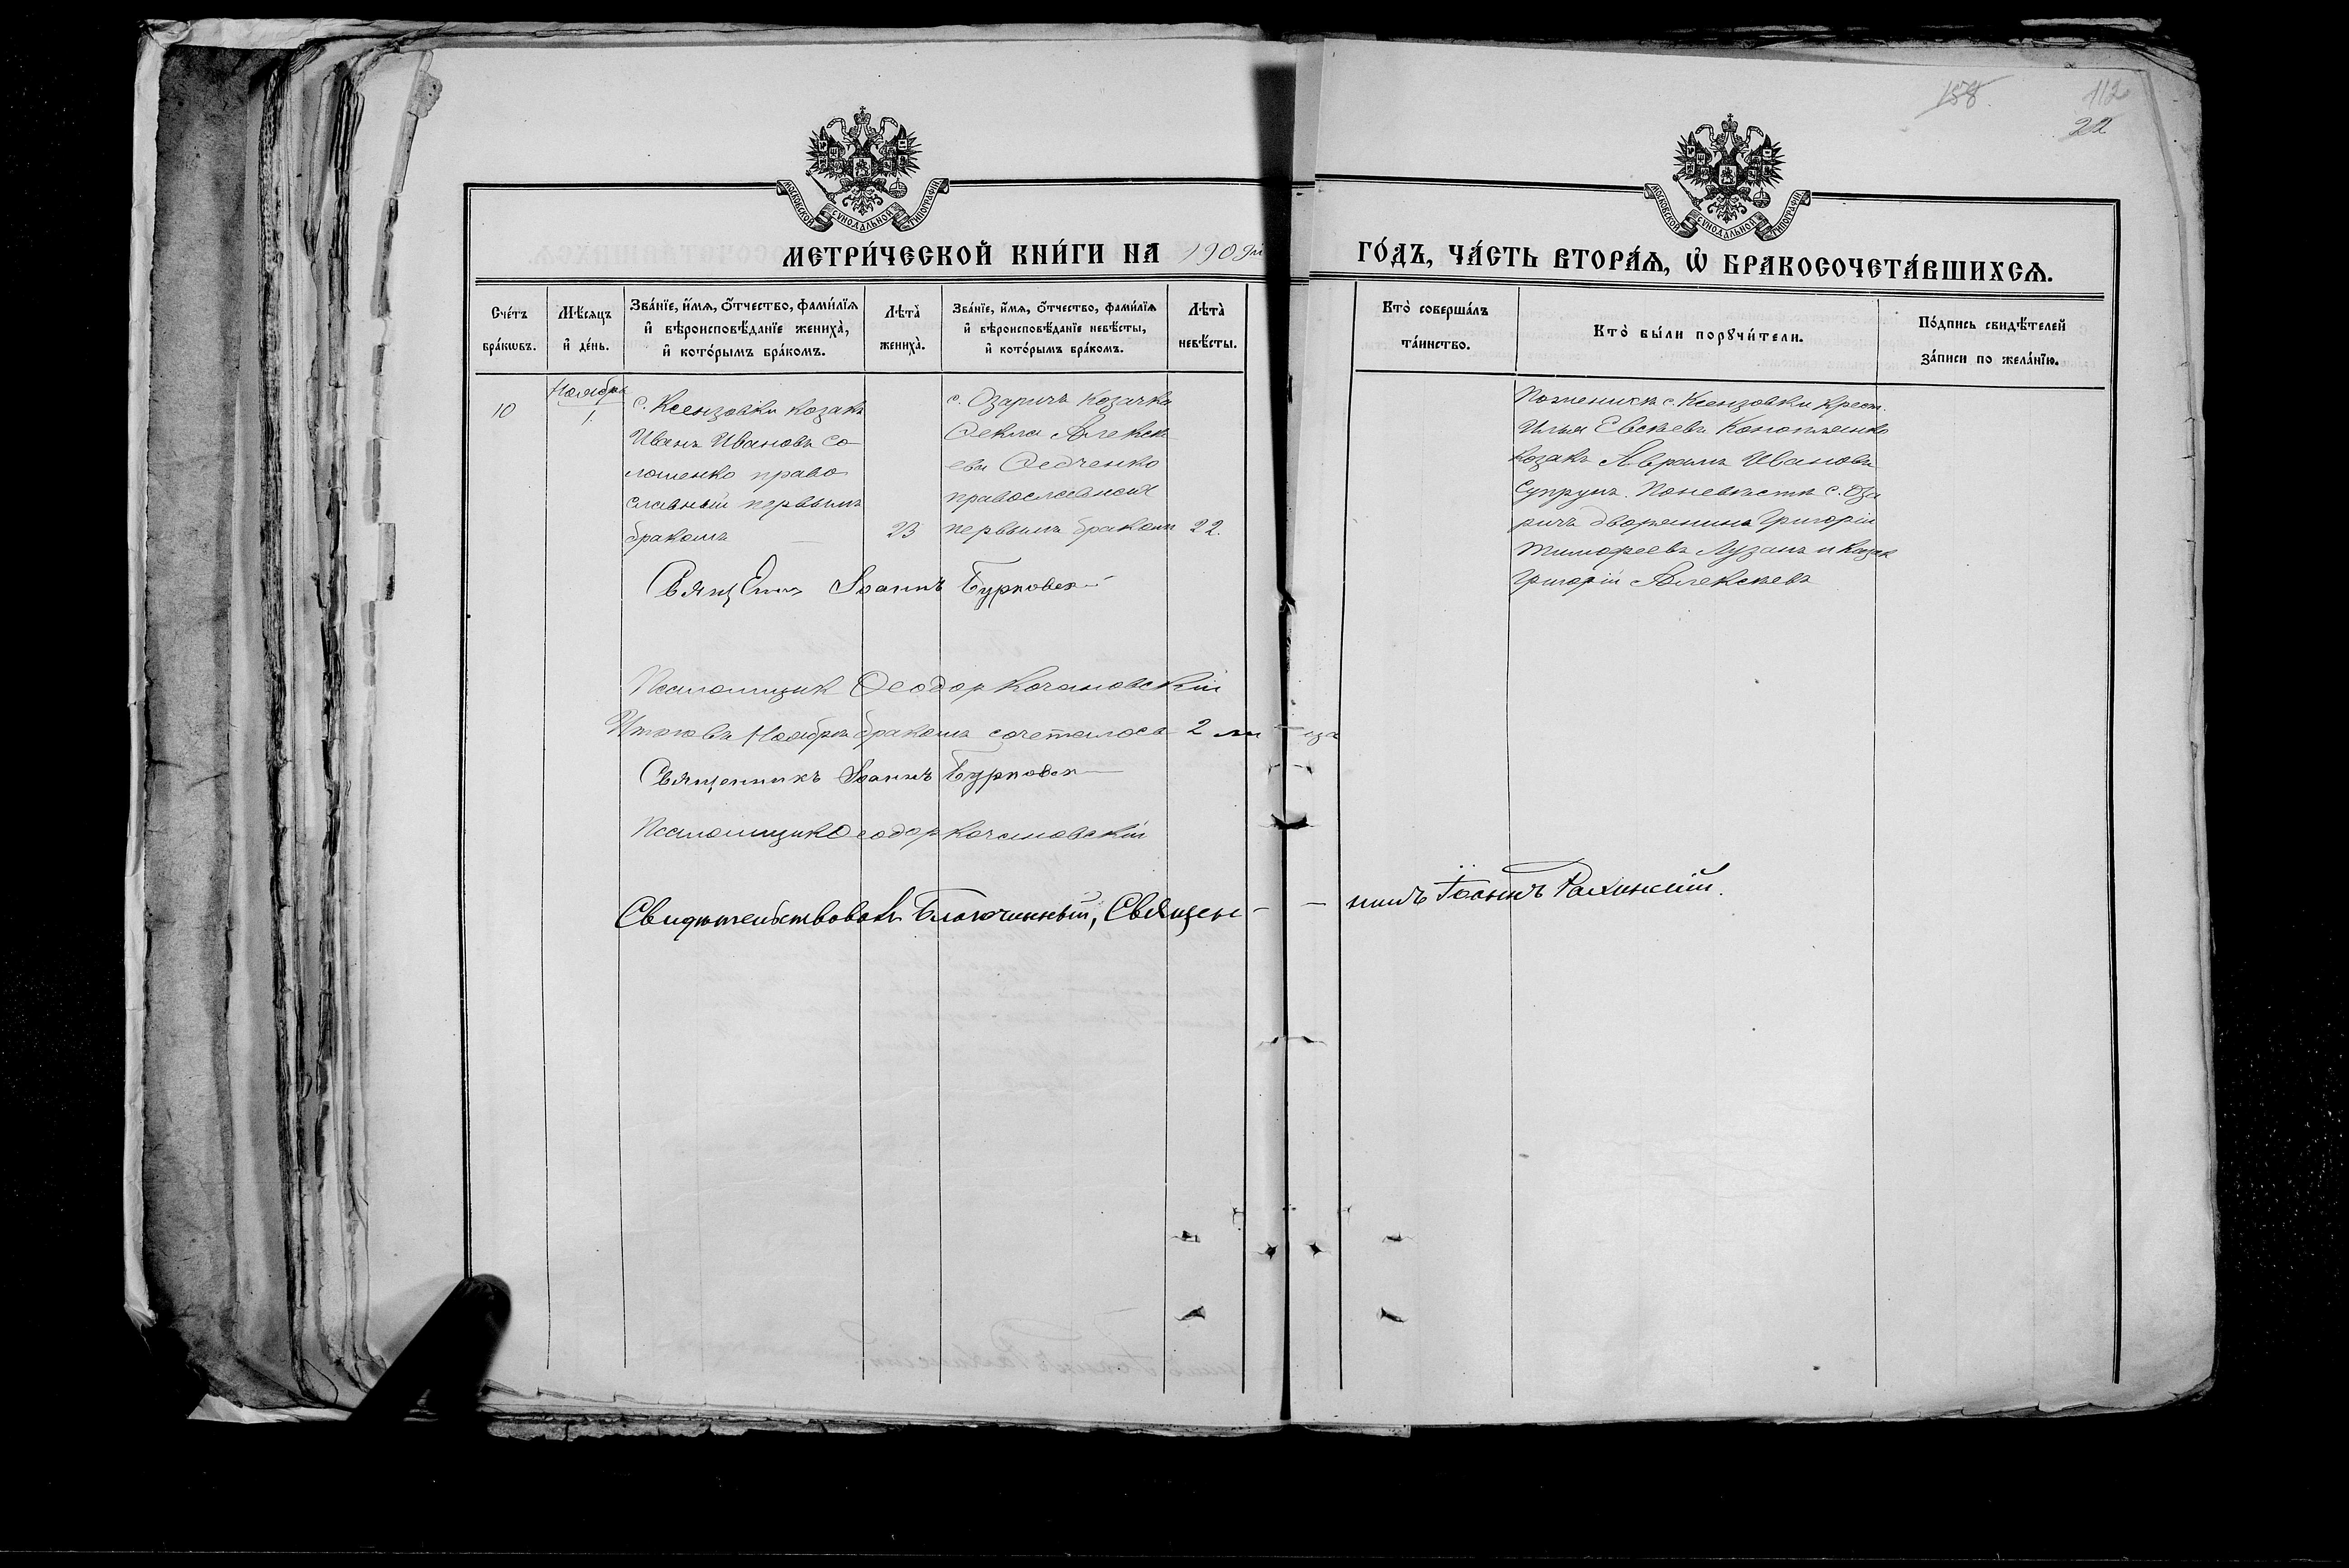 158 112
22
МОСКОВСКОЙ СѴНОДАЛЬНОЙ ТИПОГРАФІИ
МОСКОВСКОЙ СѴНОДАЛЬНОЙ ТИПОГРАФІИ
МЕТРИ́ЧЕСКОЙ КНИ́ГИ НА 1909й ГО́ДЪ, ЧА́СТЬ ВТОРА́Ѧ, Ѽ БРАКОСОЧЕТА́ВШИХСѦ.
Сче́тъ бра́кωвъ.
Мѣ́сѧцъ и҆ де́нь.
Зва́нїе, и҆́мѧ, ѻ҆́тчество, фами́лїѧ и҆ вѣроисповѣ́данїе жениха̀, и҆ кото́рымъ бра́комъ.
Лѣта̀ жениха̀.
Зва́нїе, и҆́мѧ, ѻ҆́тчество, фами́лїѧ и҆ вѣроисповѣ́данїе невѣ́сты, и҆ кото́рымъ бра́комъ.
Лѣта̀ невѣ́сты.
Кто̀ соверша́лъ та́инство.
Кто̀ бы́ли порꙋчи́тели.
По́дпись свидѣ́телей за́писи по жела́нїю.
10
Ноябрь
1.
с. Ксензовки козакъ
Иванъ Ивановъ Со
лошенко право
славный первымъ
бракомъ
23
с. Озаричъ козачка
Ѳекла Алексѣ
ева Ѳедченко
православной
первымъ бракомъ
22.
По женихѣ с. Ксензовки крест.
Илья Евсѣевъ Конопленко
козакъ Аврамъ Ивановъ
Супрунъ. По невѣстѣ с. Оза
ричъ дворянинъ Григорій
Тимофеевъ Лузанъ и козак
Григорій Алексѣевъ
Священ Іоаннъ Бурковск
Псаломщик Ѳеодор Кочановскій
Итого въ Ноябрѣ бракомъ сочеталось 2 ли ца
Священникъ Іоаннъ Бурковск
Псаломщик Ѳеодор Кочановскій
Свидѣтельствовалъ Благочинный, Священ-
никъ Іоаннъ